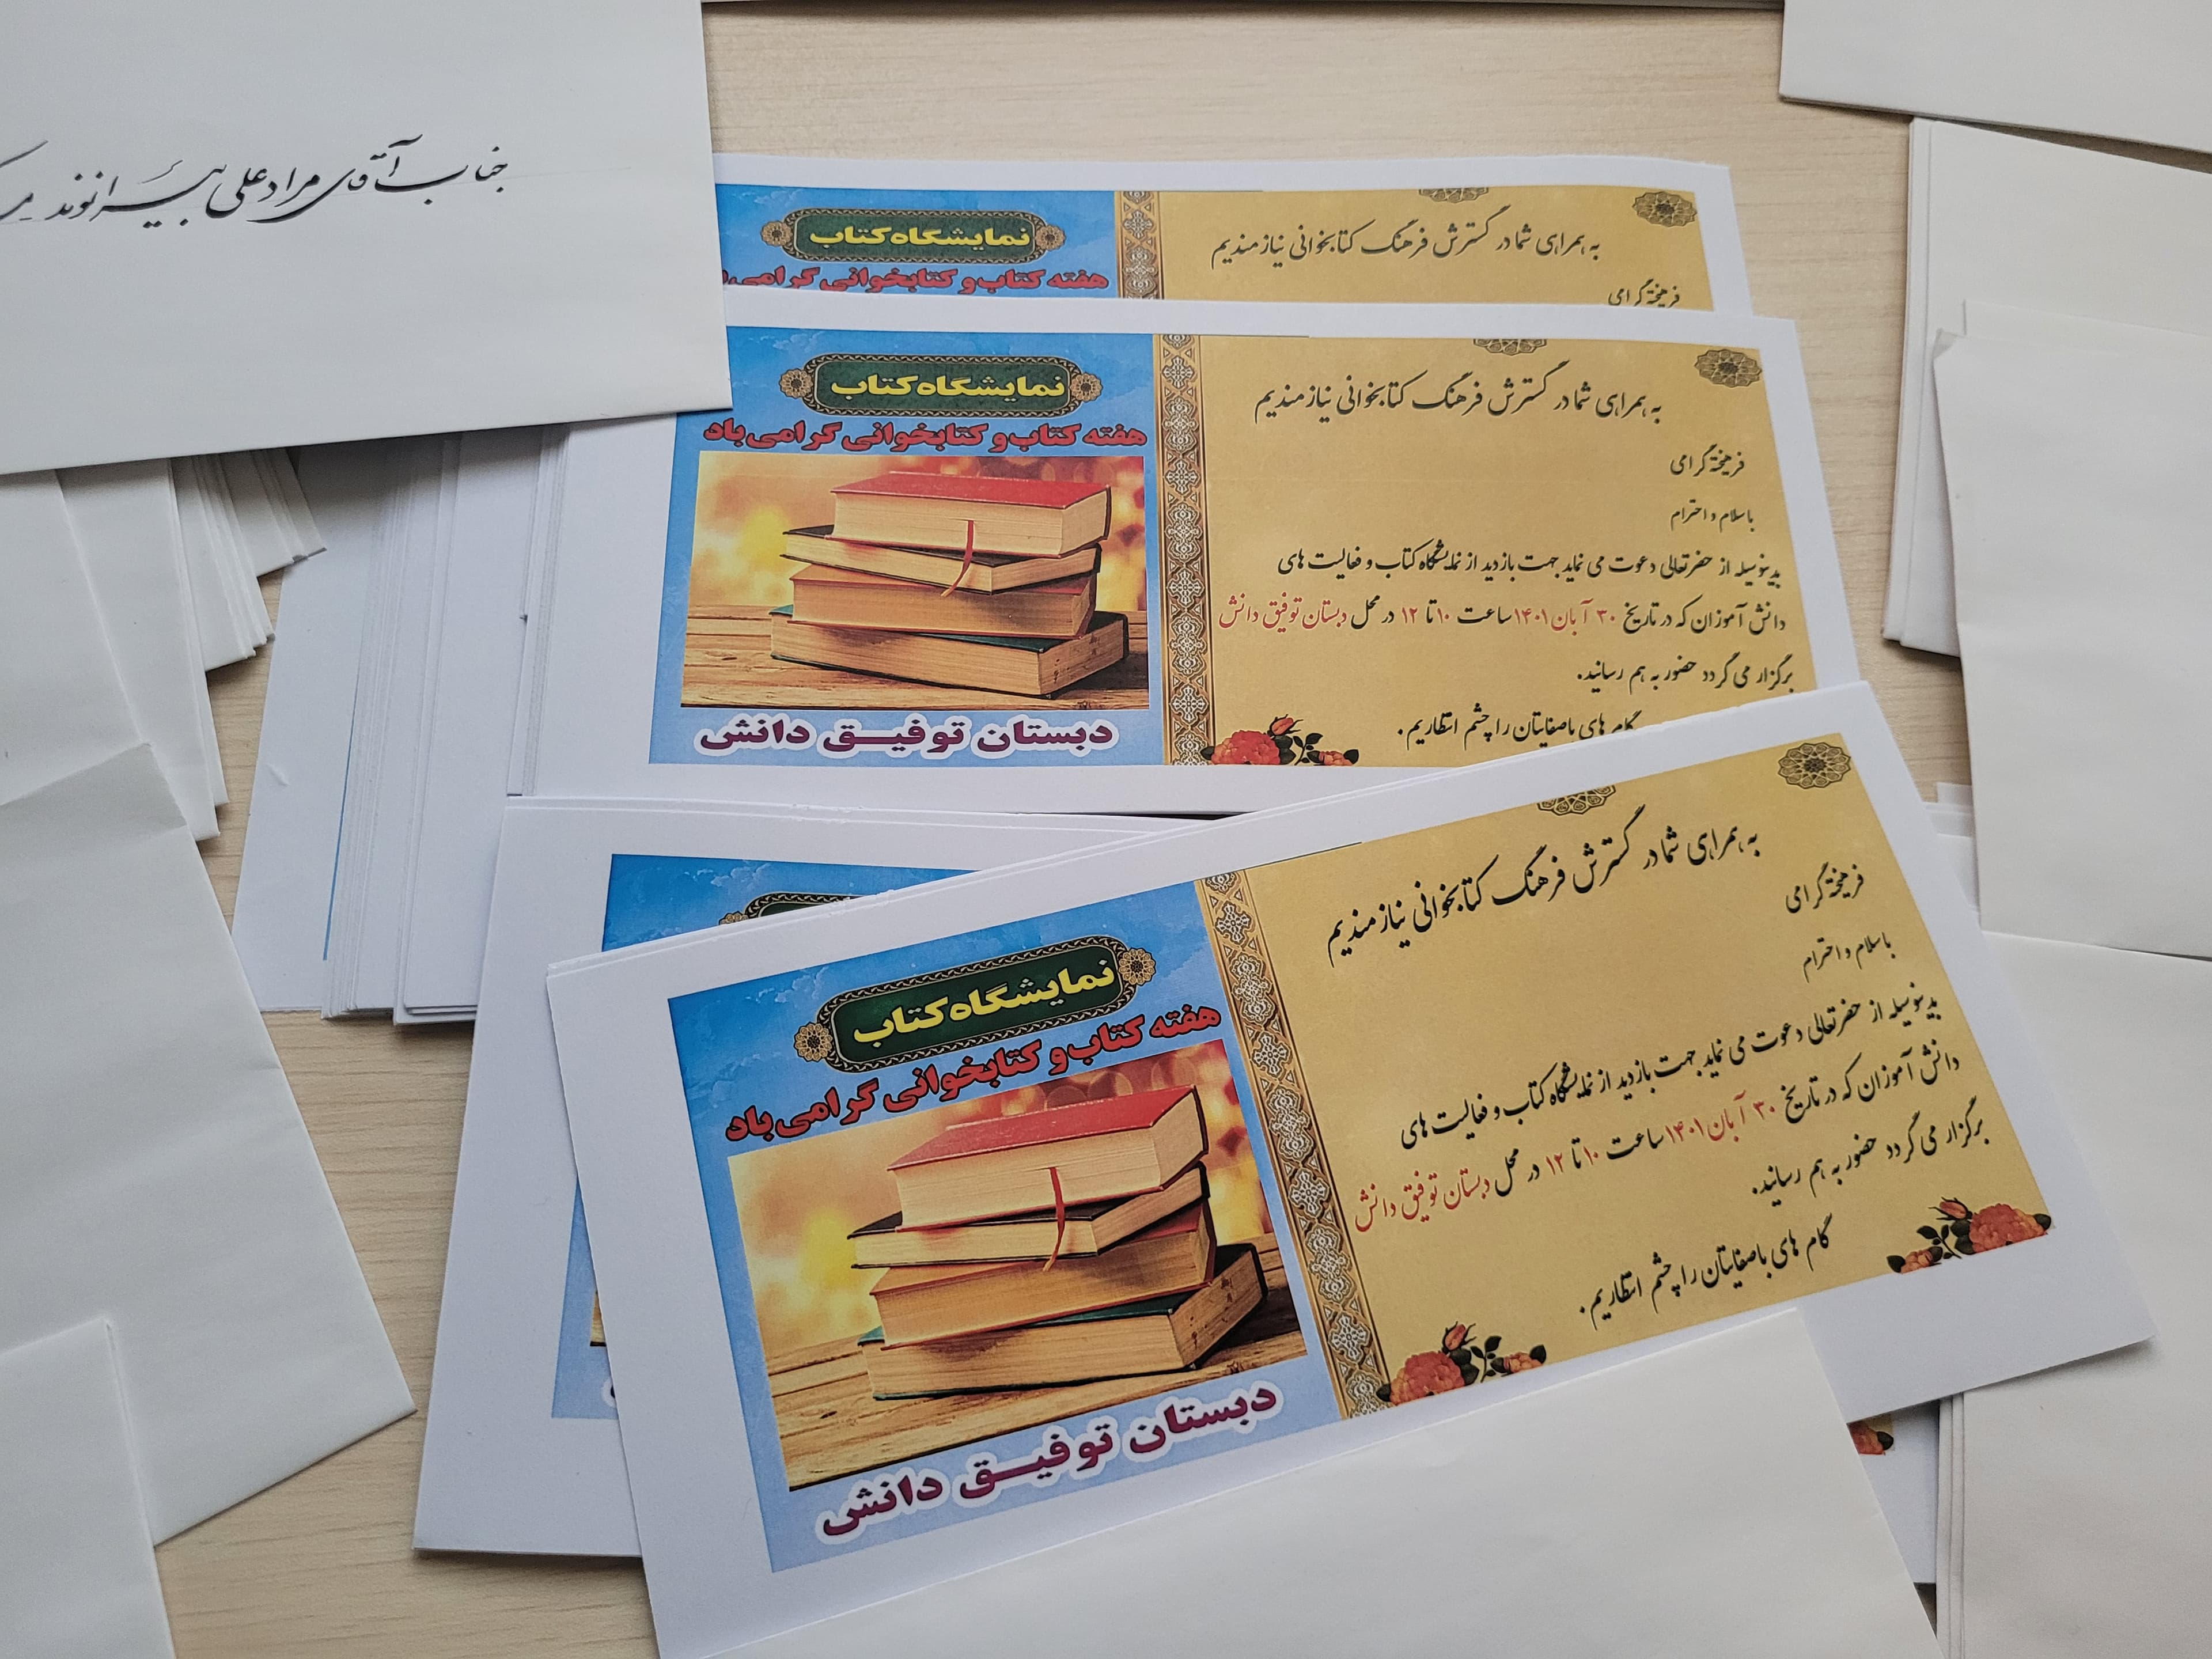 جناب آقای مرادعلی بیرانوند
نمایشگاه کتاب
هفته کتاب و کتابخوانی گرامی
به همراهی شما در گسترش فرهنگ کتابخوانی نیازمندیم
فرهیخته گرامی
نمایشگاه کتاب
هفته کتاب و کتابخوانی گرامی باد
دبستان توفیق دانش
به همراهی شما در گسترش فرهنگ کتابخوانی نیازمندیم
فرهیخته گرامی
با سلام و احترام
بدینوسیله از حضرتعالی دعوت می نماید جهت بازدید از نمایشگاه کتاب و فعالیت های
دانش آموزان که در تاریخ ۳۰ آبان ۱۴۰۱ ساعت ۱۰ تا ۱۲ در محل دبستان توفیق دانش
برگزار می گردد حضور به هم رسانید.
گام های باصفایتان را چشم انتظاریم.
نمایشگاه کتاب
هفته کتاب و کتابخوانی گرامی باد
دبستان توفیق دانش
به همراهی شما در گسترش فرهنگ کتابخوانی نیازمندیم
فرهیخته گرامی
با سلام و احترام
بدینوسیله از حضرتعالی دعوت می نماید جهت بازدید از نمایشگاه کتاب و فعالیت های
دانش آموزان که در تاریخ ۳۰ آبان ۱۴۰۱ ساعت ۱۰ تا ۱۲ در محل دبستان توفیق دانش
برگزار می گردد حضور به هم رسانید.
گام های باصفایتان را چشم انتظاریم.